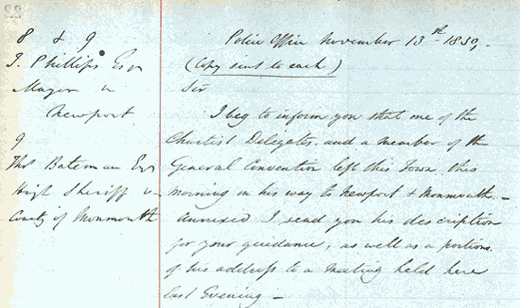 8 & 9
T. Phillips Esqr
Mayor
Newport
9
Thos Bateman Esq
High Sheriff
County of Monmouth
Police Office November 13th 1839.
(Copy sent to each)
Sir
I beg to inform you that one of the
Chartist Delegates, and a member of the
General Convention left this Town this
morning on his way to Newport & Monmouth. —
Annexed I send you his description
for your guidance, as well as a portion
of his address to a Meeting held here
last Evening —